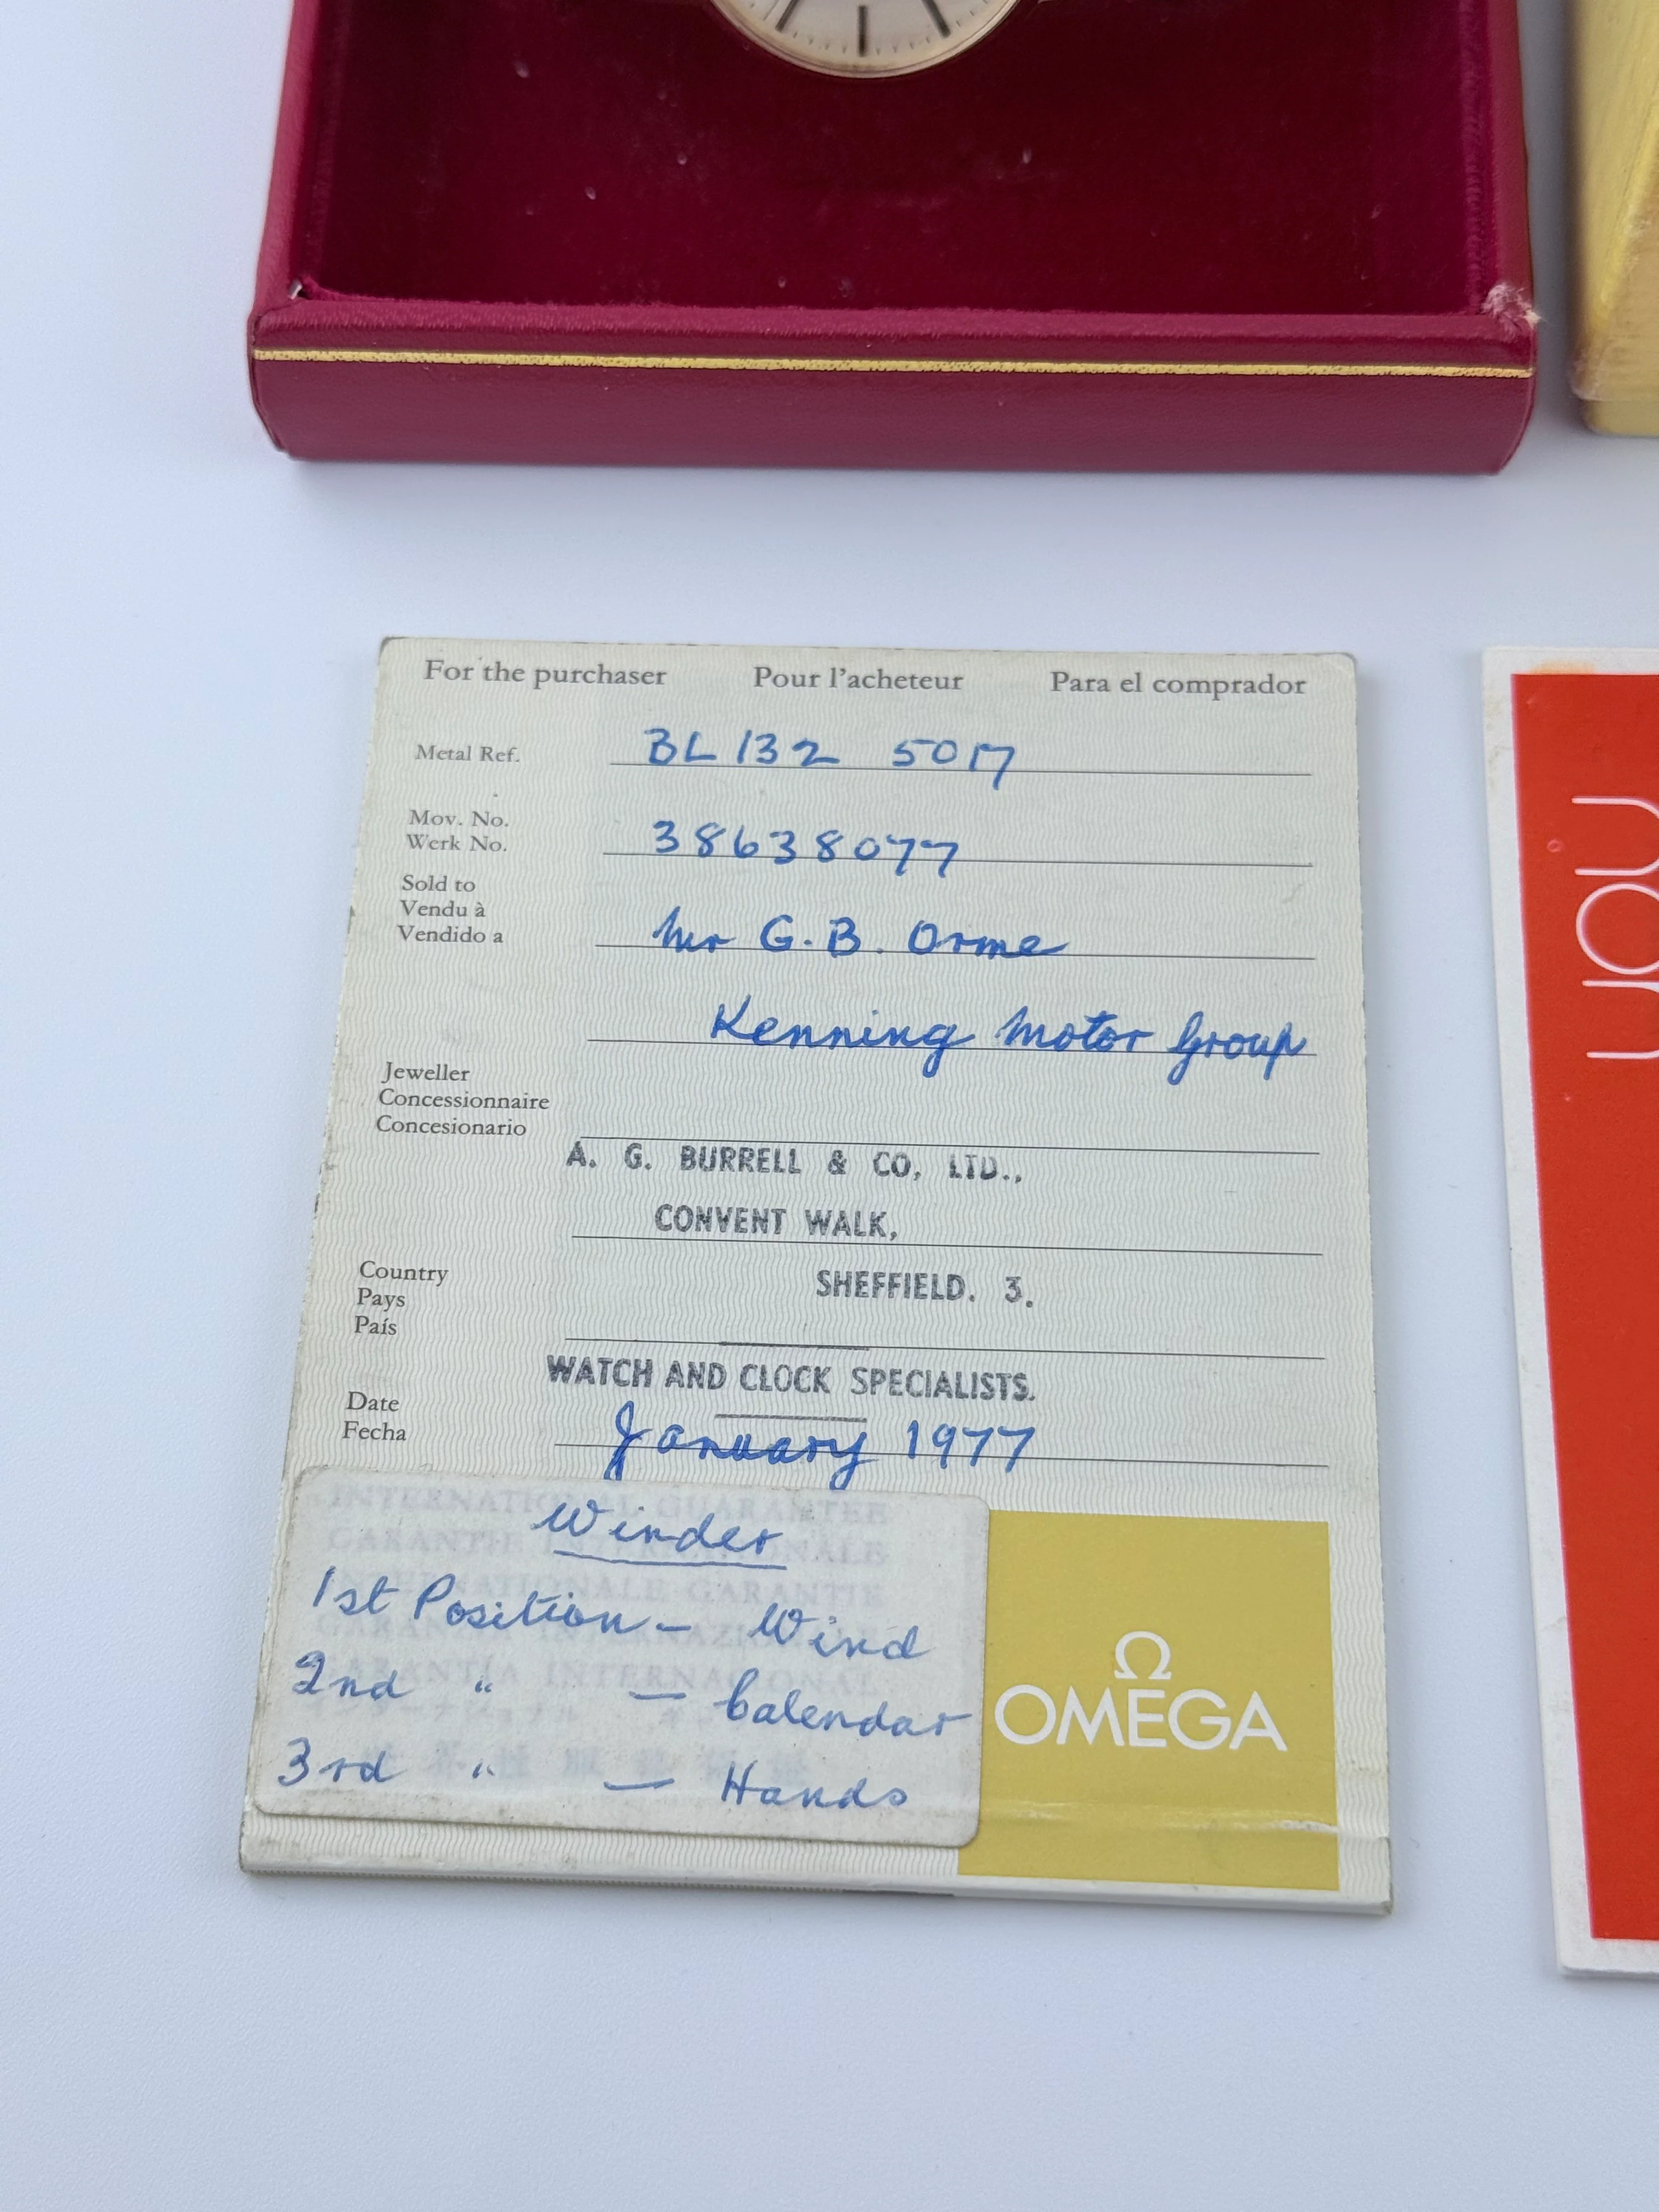 For the purchaser Pour l'acheteur Para el comprador
Metal Ref. BL 132 5017
Mov. No. 38638077
Werk No.
Sold to
Vendu à
Vendido a Mr G. B. Orme
Kenning Motor Group
Jeweller
Concessionnaire
Concesionario
A. G. BURRELL & CO, LTD.,
CONVENT WALK,
SHEFFIELD. 3.
Country
Pays
País
WATCH AND CLOCK SPECIALISTS.
Date
Fecha January 1977
INTERNATIONAL GUARANTEE
GARANTIE INTERNATIONALE
INTERNATIONALE GARANTIE
GARANZIA INTERNAZIONALE
GARANTÍA INTERNACIONAL
Winder
1st Position - Wind
2nd " - Calendar
3rd " - Hands
Ω
OMEGA